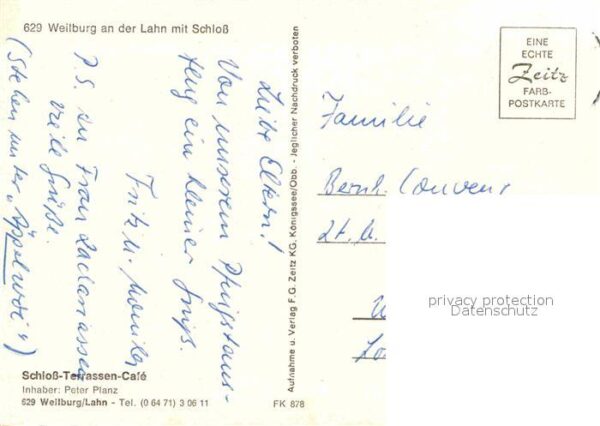 629 Weilburg an der Lahn mit Schloß
Liebe Eltern!
Von unserem Pfingstaus-
flug ein kleiner Gruß.
Fritz u. Monika
P.S. an Frau
viele Grüße.
(Stehen unter „Äppelwoi")
Schloß-Terrassen-Café
Inhaber: Peter Planz
629 Weilburg/Lahn - Tel. (0 64 71) 3 06 11
FK 878
Aufnahme u. Verlag F.G. Zeitz KG, Königssee/Obb. - Jeglicher Nachdruck verboten
EINE
ECHTE
Zeitz
FARB-
POSTKARTE
Familie
Bernh.
privacy protection
Datenschutz